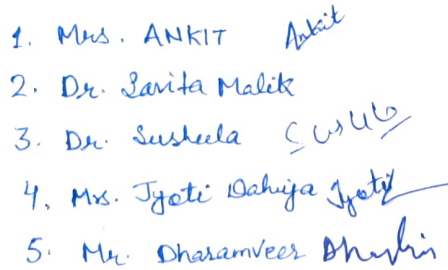 1. Mrs. ANKIT Ankit
2. Dr. Savita Malik
3. Dr. Susheela
4. Mrs. Jyoti Dahiya Jyoti
5. Mr. Dharamveer